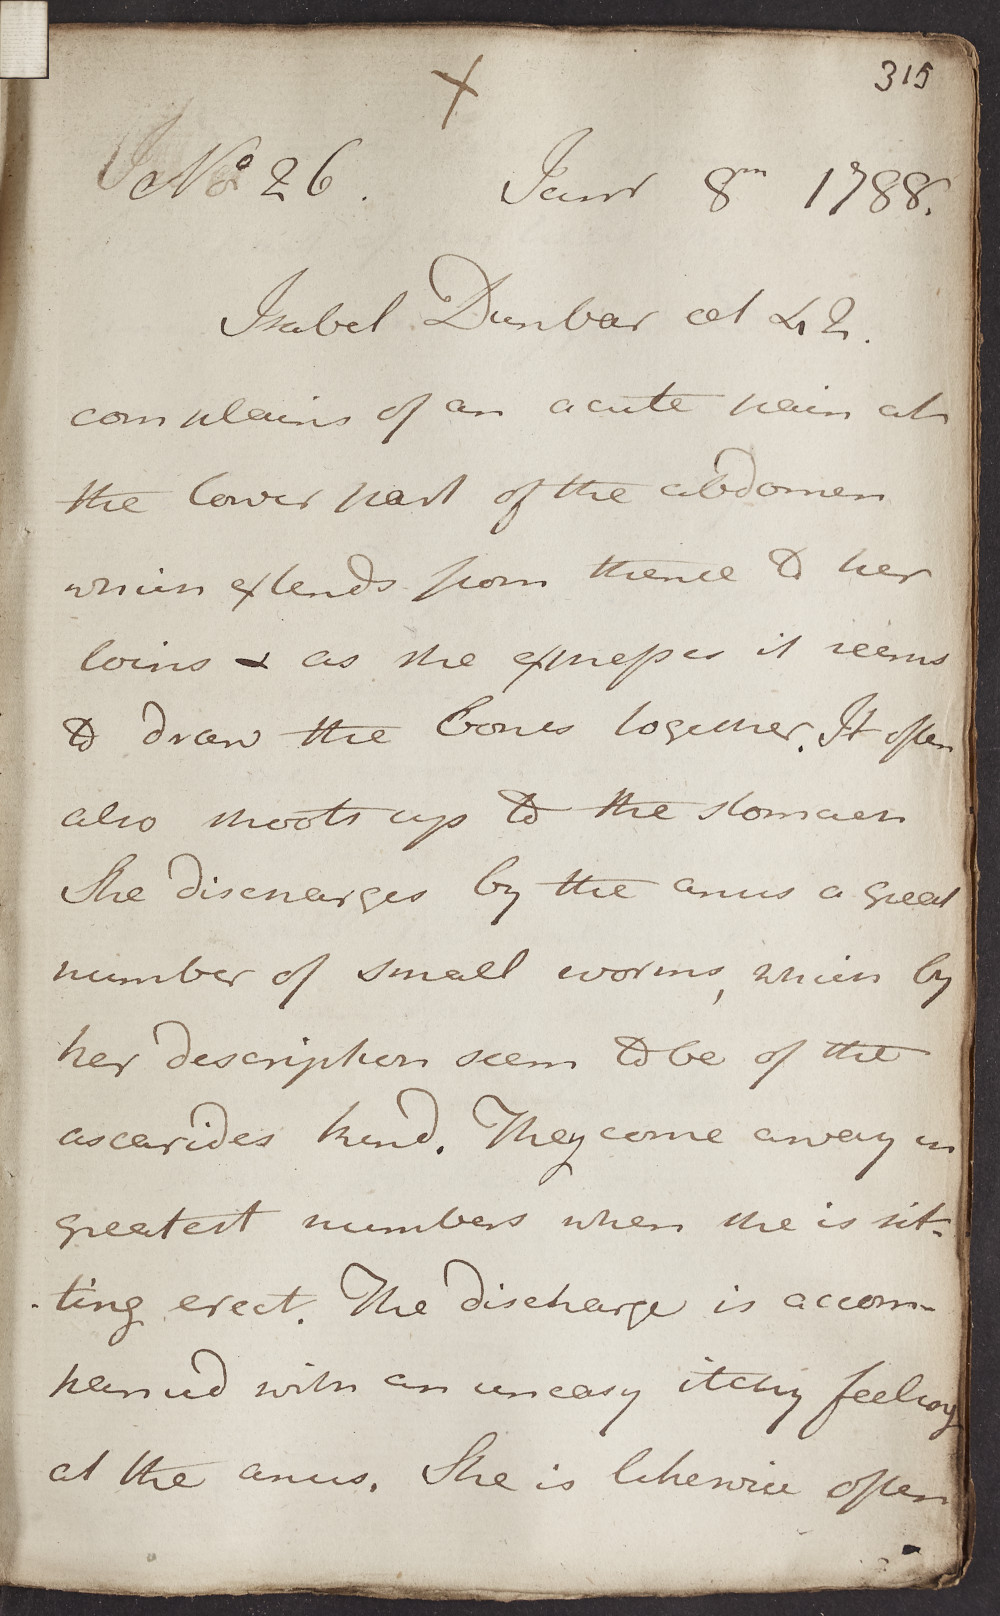 315
No 26. Janr 8th 1788.
Isabel Dunbar æt 42.
complains of an acute pain at
the lower part of the abdomen
which extends from thence to her
loins & as she expresses it seems
to draw the bones together. It often
also shoots up to the stomach
She discharges by the anus a great
number of small worms, which by
her description seem to be of the
ascarides kind. They come away in
greatest numbers when she is sit-
ting erect. The discharge is accom-
panied with an uneasy itchy feeling
at the anus. She is likewise often